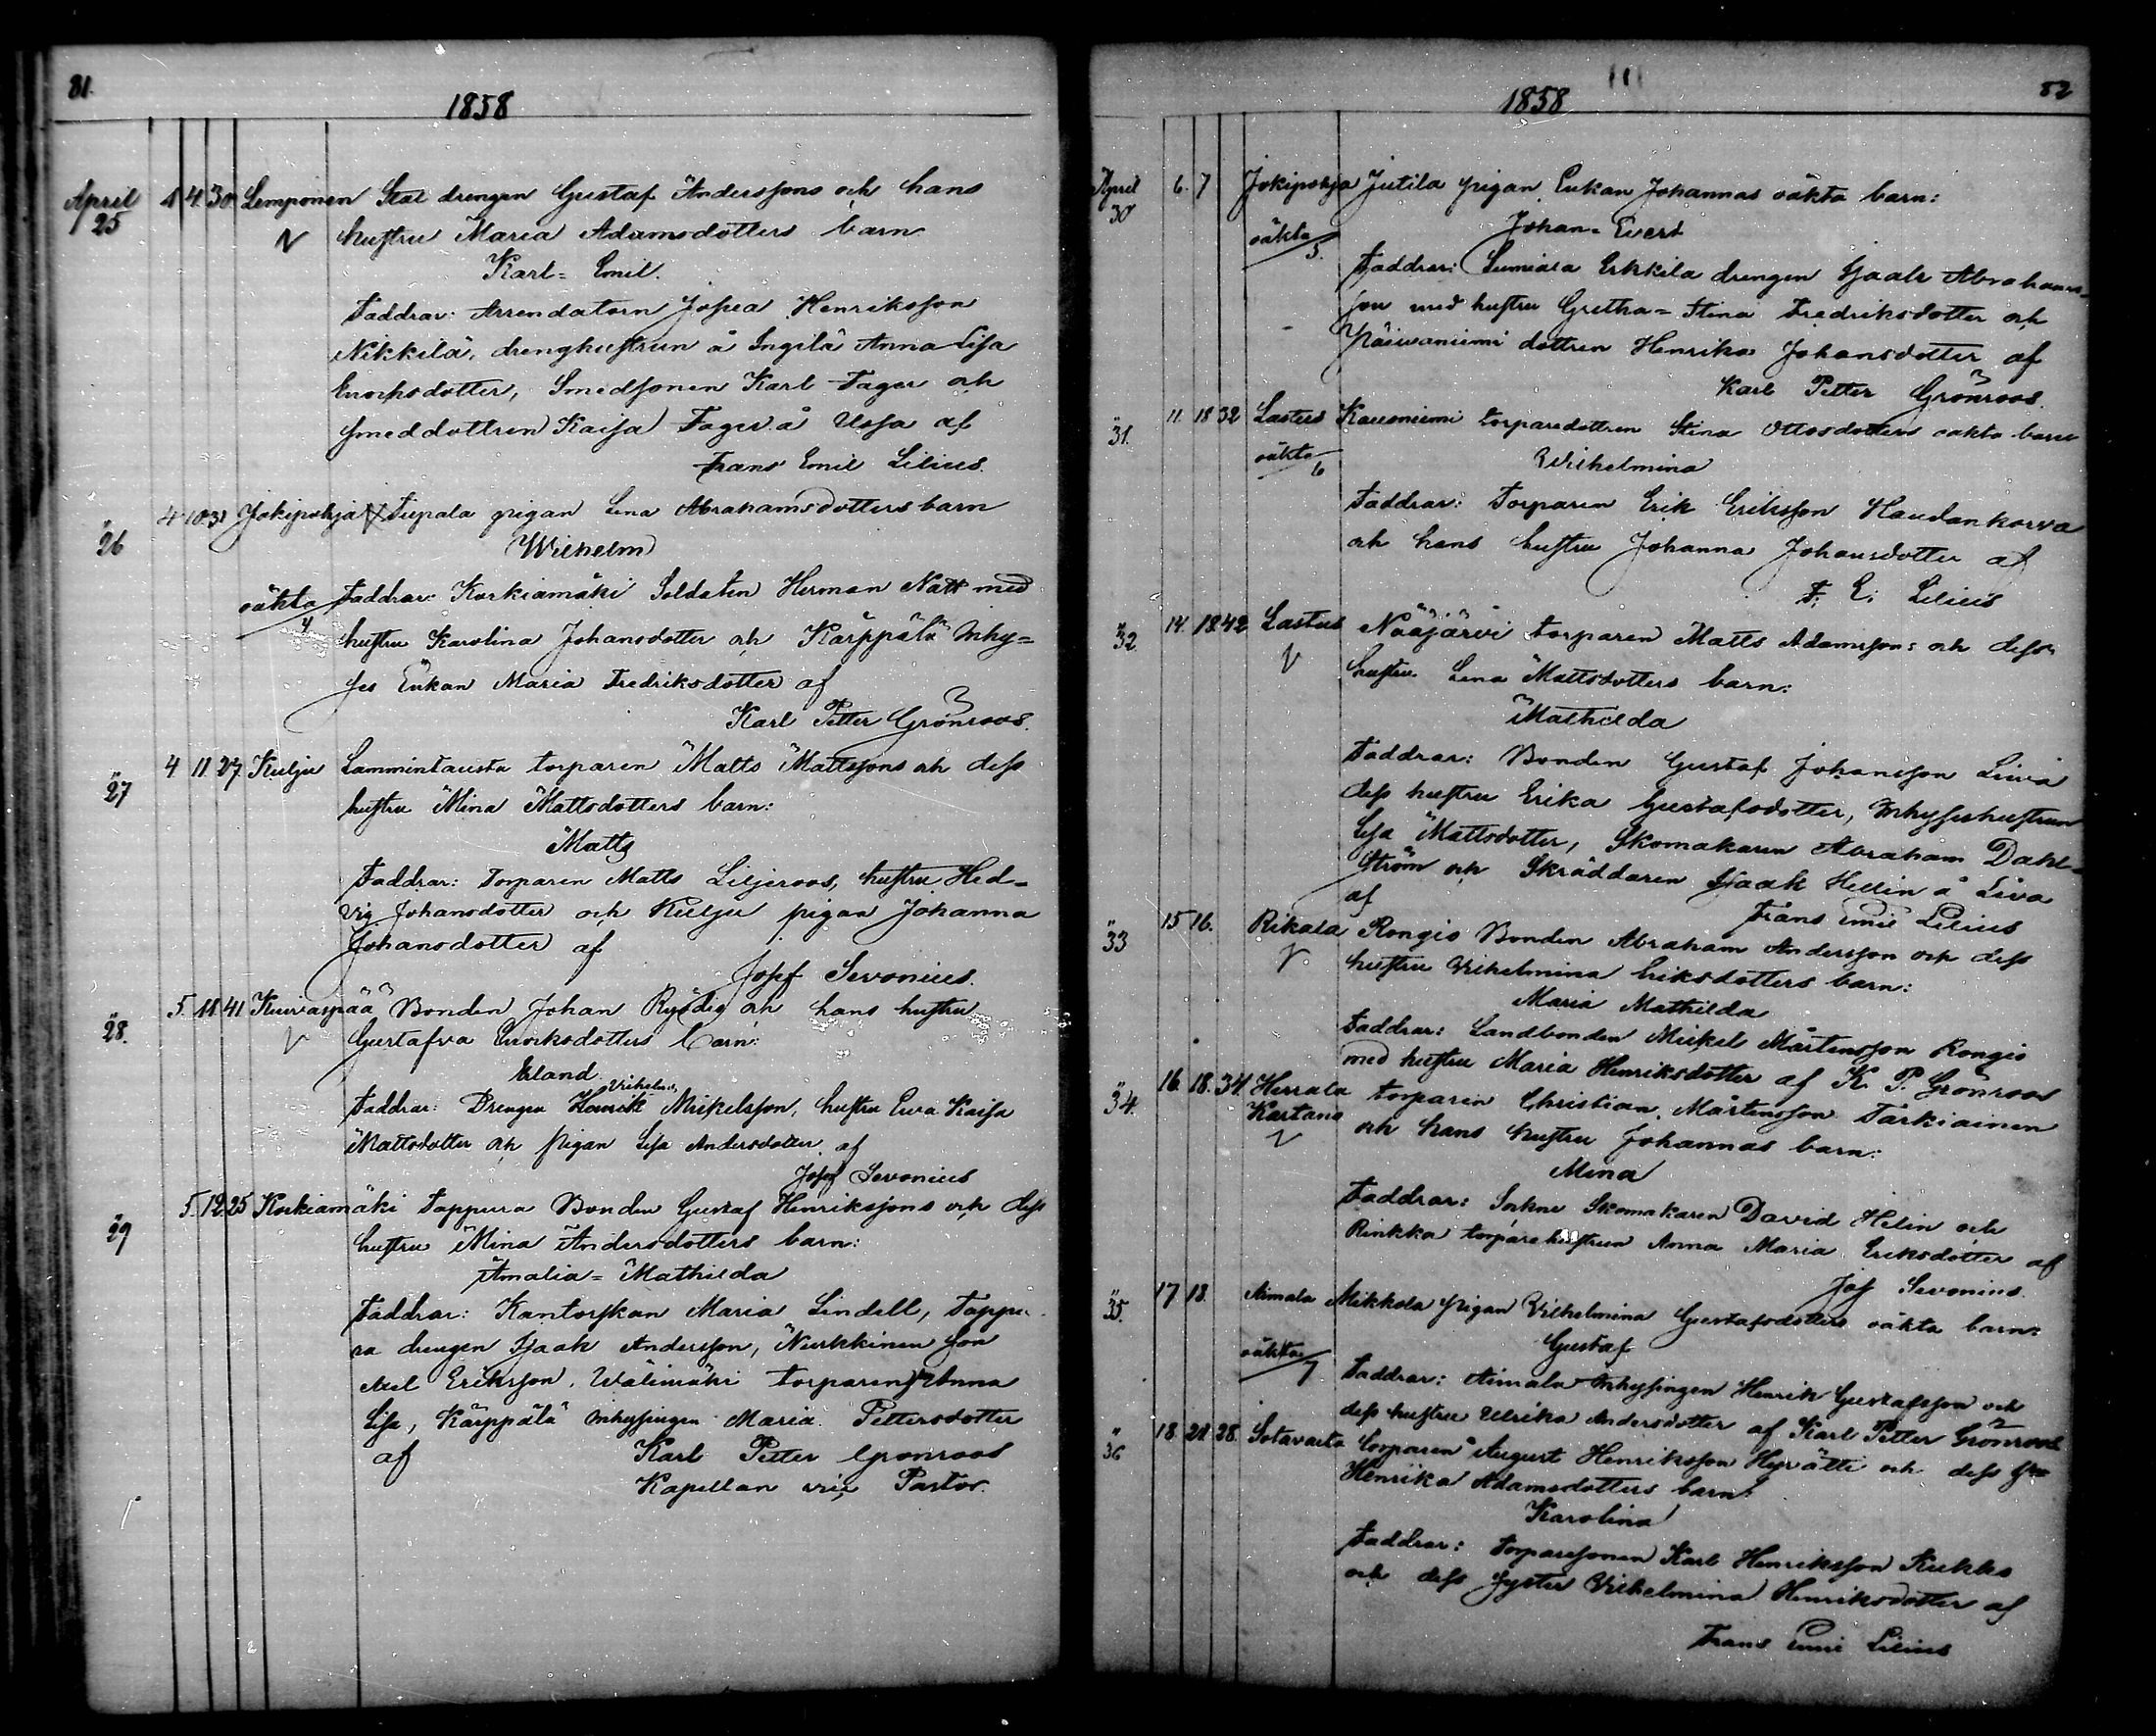 81.
1858
April 25 1 4. 30. Lemponen Stat drengen Gustaf Anderssons och hans
hustru Maria Adamsdotters barn
Karl= Emil.
Faddrar: Arrendatorn Josua Henriksson
Nikkilä, drenghustrun å Ingilä Anna Lisa
Enoksdotter, Smedsonen Karl Fager och
smeddottren Kaisa Fager å Ussa af
Frans Emil Lilius.
" 26 4 10 31 Jokipohja Tiepala pigan Lena Abrahamsdotters barn
Wilhelm
oäkta 4 Faddrar: Korkiamäki Soldaten Herman Natt med
hustru Karolina Johansdotter och Kärppälä Inhy=
ses Enkan Maria Fredriksdotter af
Karl Petter Grönroos.
" 27 4 11. 27. Kulju Lammintausta torparen Matts Mattssons och dess
hustru Mina Mattsdotters barn:
Matts
Faddrar: Torparen Matts Liljeroos, hustru Hed-
vig Johansdotter och Kulju pigan Johanna
Johansdotter af
Josef Sevonius.
" 28. 5. 11. 41 Kuivaspää Bonden Johan Rysdig och hans hustru
Gustafva Enoksdotters barn:
Erland
Faddrar: Drengen Henrik Vilhelm Mickelsson, hustru Eva Kaisa
Mattsdotter och pigan Lisa Andersdotter af
Josef Sevonius
" 29 5. 12. 25 Korkiamäki Tappura Bonden Gustaf Henrikssons och dess
hustru Mina Andersdotters barn:
Amalia= Mathilda
Faddrar: Kantorskan Maria Lindell, Tappu-
ra drengen Isaak Andersson, Nurkkinen son
Axel Eriksson, Wälimäki torparen Anna
Lisa, Kärppälä Inhysingen Maria Pettersdotter
af Karl Petter Grönroos
Kapellan vic. Pastor.
82
1858
April 30 6. 7 Jokipohja Jutila pigan Enkan Johannas oäkta barn:
Johan= Evert
oäkta 5.
Faddrar: Sumiala Erkkila drengen Isaak Abrahams-
son med hustru Gretha= Stina Fredriksdotter och
Päivaniemi dottren Henrika Johansdotter af
Karl Petter Grönroos.
" 31. 11. 18 32 Lastus Kauoniemi torparedottren Stina Ottosdotters oäkta barn
oäkta 6 Wilhelmina
Faddrar: Torparen Erik Eriksson Haudankorva
och hans hustru Johanna Johansdotter af
F. E. Lilius
" 32. 14. 18 42 Lastus Nääjärvi torparen Matts Adamsson: och dess
hustru Lena Mattsdotters barn:
Mathilda
Faddrar: Bonden Gustaf Johansson Liuva
dess hustru Erika Gustafsdotter, Inhyseshustrun
Lisa Mattsdotter, Skomakaren Abraham Dahl-
ström och Skräddaren Isaak Hellin å Liva
af Frans Emil Lilius
" 33 15 16. Rikala Rongio Bonden Abraham Andersson och dess
hustru Vilhelmina Eriksdotters barn:
Maria Mathilda
Faddrar: Landbonden Mickel Mårtensson Rongio
med hustru Maria Henriksdotter af K. P. Grönroos
" 34. 16. 18. 34. Herrala Kartano torparen Christian Mårtensson Tarkiainen
och hans hustru Johannas barn:
Mina
Faddrar: Sockne Skomakaren David Helin och
Rinkka torparehustrun Anna Maria Eriksdotter af
Jos. Sevonius.
" 35. 17 18. Aimala Mikkola pigan Vilhelmina Gustafsdotters oäkta barn:
Gustaf
oäkta 7 Faddrar: Aimala Inhysingen Henrik Gustafsson och
dess hustru Ulrika Andersdotter af Karl Petter Grönroos
" 36 18. 21. 28. Sotavalta torparen August Henriksson Hyvätti och dess
Henrika Adamsdotters barn:
Karolina
Faddrar: Torparesonen Karl Henriksson Kukko
och dess syster Vilhelmina Henriksdotter af
Frans Emil Lilius